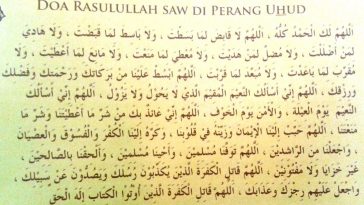 DOA RASULULLAH SAW DI PERANG UHUD
اَللّٰهُمَّ لَكَ الْحَمْدُ كُلُّهُ ، اَللّٰهُمَّ لَا قَابِضَ لِمَا بَسَطْتَ ، وَلَا بَاسِطَ لِمَا قَبَضْتَ ، وَلَا هَادِيَ
لِمَنْ أَضْلَلْتَ ، وَلَا مُضِلَّ لِمَنْ هَدَيْتَ ، وَلَا مُعْطِيَ لِمَا مَنَعْتَ ، وَلَا مَانِعَ لِمَا أَعْطَيْتَ ، وَلَا
مُقَرِّبَ لِمَا بَاعَدْتَ ، وَلَا مُبَعِّدَ لِمَا قَرَّبْتَ ، اَللّٰهُمَّ ابْسُطْ عَلَيْنَا مِنْ بَرَكَاتِكَ وَرَحْمَتِكَ وَفَضْلِكَ
وَرِزْقِكَ ، اَللّٰهُمَّ إِنِّي أَسْأَلُكَ النَّعِيْمَ الْمُقِيْمَ الَّذِيْ لَا يَحُوْلُ وَلَا يَزُوْلُ ، اَللّٰهُمَّ إِنِّي أَسْأَلُكَ
النَّعِيْمَ يَوْمَ الْعَيْلَةِ ، وَالْأَمْنَ يَوْمَ الْخَوْفِ ، اَللّٰهُمَّ إِنِّي عَائِذٌ بِكَ مِنْ شَرِّ مَا أَعْطَيْتَنَا وَشَرِّ مَا
مَنَعْتَنَا ، اَللّٰهُمَّ حَبِّبْ إِلَيْنَا الْإِيْمَانَ وَزَيِّنْهُ فِيْ قُلُوْبِنَا ، وَكَرِّهْ إِلَيْنَا الْكُفْرَ وَالْفُسُوْقَ وَالْعِصْيَانَ
وَاجْعَلْنَا مِنَ الرَّاشِدِيْنَ ، اَللّٰهُمَّ تَوَفَّنَا مُسْلِمِيْنَ ، وَأَحْيِنَا مُسْلِمِيْنَ ، وَأَلْحِقْنَا بِالصَّالِحِيْنَ
غَيْرَ خَزَايَا وَلَا مَفْتُوْنِيْنَ ، اَللّٰهُمَّ قَاتِلِ الْكَفَرَةَ الَّذِيْنَ يُكَذِّبُوْنَ رُسُلَكَ وَيَصُدُّوْنَ عَنْ سَبِيْلِكَ
، وَاجْعَلْ عَلَيْهِمْ رِجْزَكَ وَعَذَابَكَ ، اَللّٰهُمَّ قَاتِلِ الْكَفَرَةَ الَّذِيْنَ أُوْتُوا الْكِتَابَ إِلٰهَ الْحَقِّ